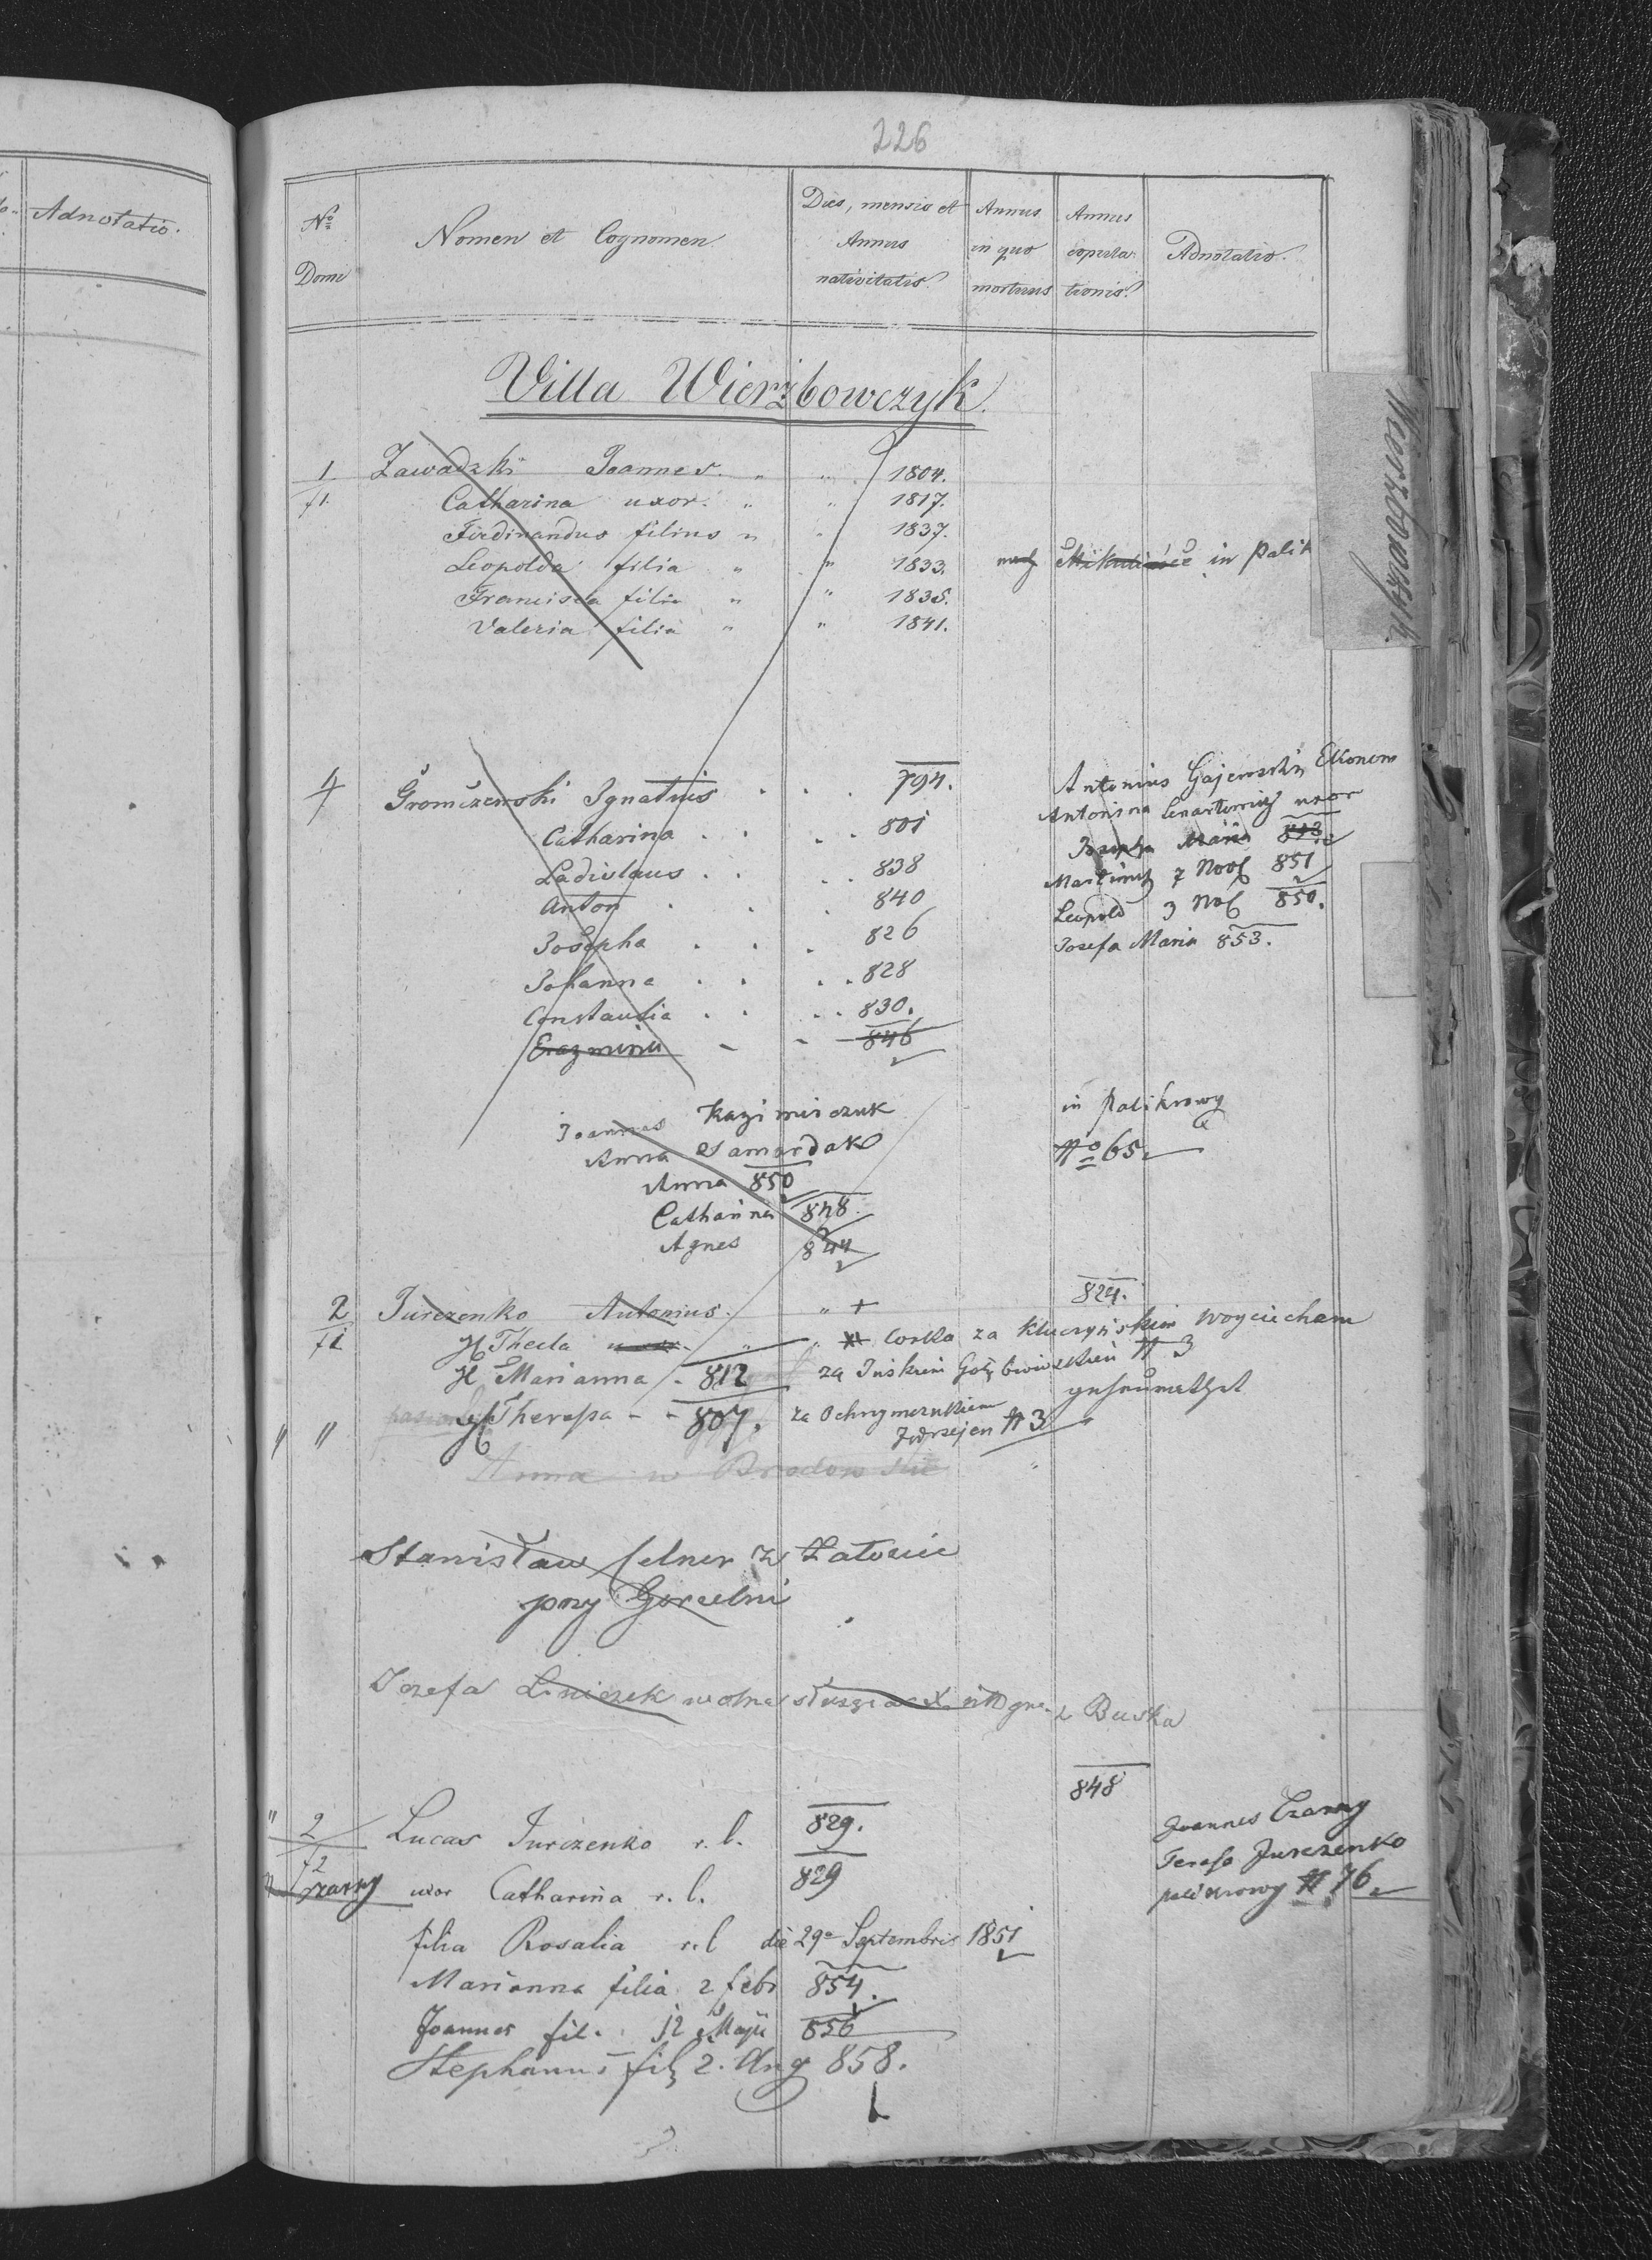 226
Adnotatio.
No Domi
Nomen et Cognomen
Dies, mensis et Annus nativitatis
Annus in quo mortuus
Annus copulationis
Adnotatio.
Villa Wierzbowczyk.
Wierzbowczyk
1 Zawadzki Joannes. " " 1804.
f1. Catharina uxor. " " 1817.
Ferdinandus filius " " 1837.
Leopolda filia " " 1833. in Palik
Francisca filia " " 1835.
Valeria filia " " 1841.
4 Gromczewski Ignatius . . . 794.
Catharina . . . 801
Ladislaus . . . 838
Anton . . . 840
Josepha . . . 826
Johanna . . . 828
Constantia . . . 830.
846
Antonius Gajewski Ekonom
Antonina uxor
Josepha Maria 853
7 Nov 851
Leopold 3 850.
Josefa Maria 853.
Joannes Kazimirczuk
Anna Samardak
Anna 850
Catharina 848
Agnes 844
in Palikrowy
No 65
2 Jurczenko Antonius. " +
824.
f1 Thecla uxor " corka za Kluczyńskim Woyciechem
Marianna - 812 za # 3
" " Theresa - - 807. za
Jędrzejem # 3
Anna w
Stanisław Celner z Załoziec
przy Gorzelni
Jozefa wolna z Buska
848
" 2 Lucas Jurczenko r. l. 829.
f2
Czarny uxor Catharina r. l. 829
Joannes Czarny
Teresa Jurczenko
palikrowy # 76
filia Rosalia r. l die 29a Septembris 1851
Marianna filia 2 febr 854.
Joannes fil. 12 Maji 856
Stephanus fil 2. Aug 858.